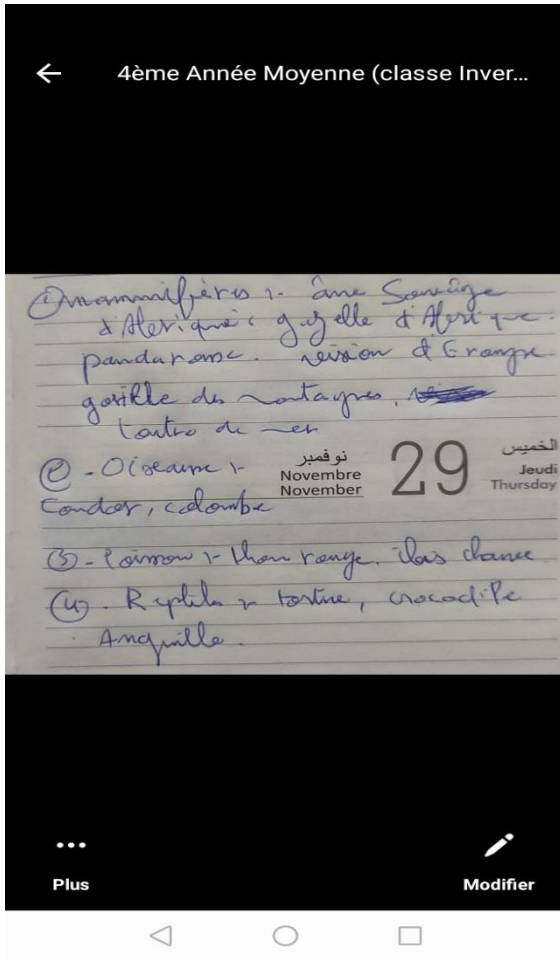 4ème Année Moyenne (classe Inver...
① mammifères :- âne Sauvage
d'Afrique, gazelle d'Afrique.
panda rousse. vision d'Europe
gorille des montagnes,
loutre de mer
② - Oiseaux :-
نوفمبر
Novembre
November
29
الخميس
Jeudi
Thursday
Condor, colombe
③ - Poisson :- thon rouge,
④ - Reptiles :- tortue, crocodile
Anguille.
Plus
Modifier